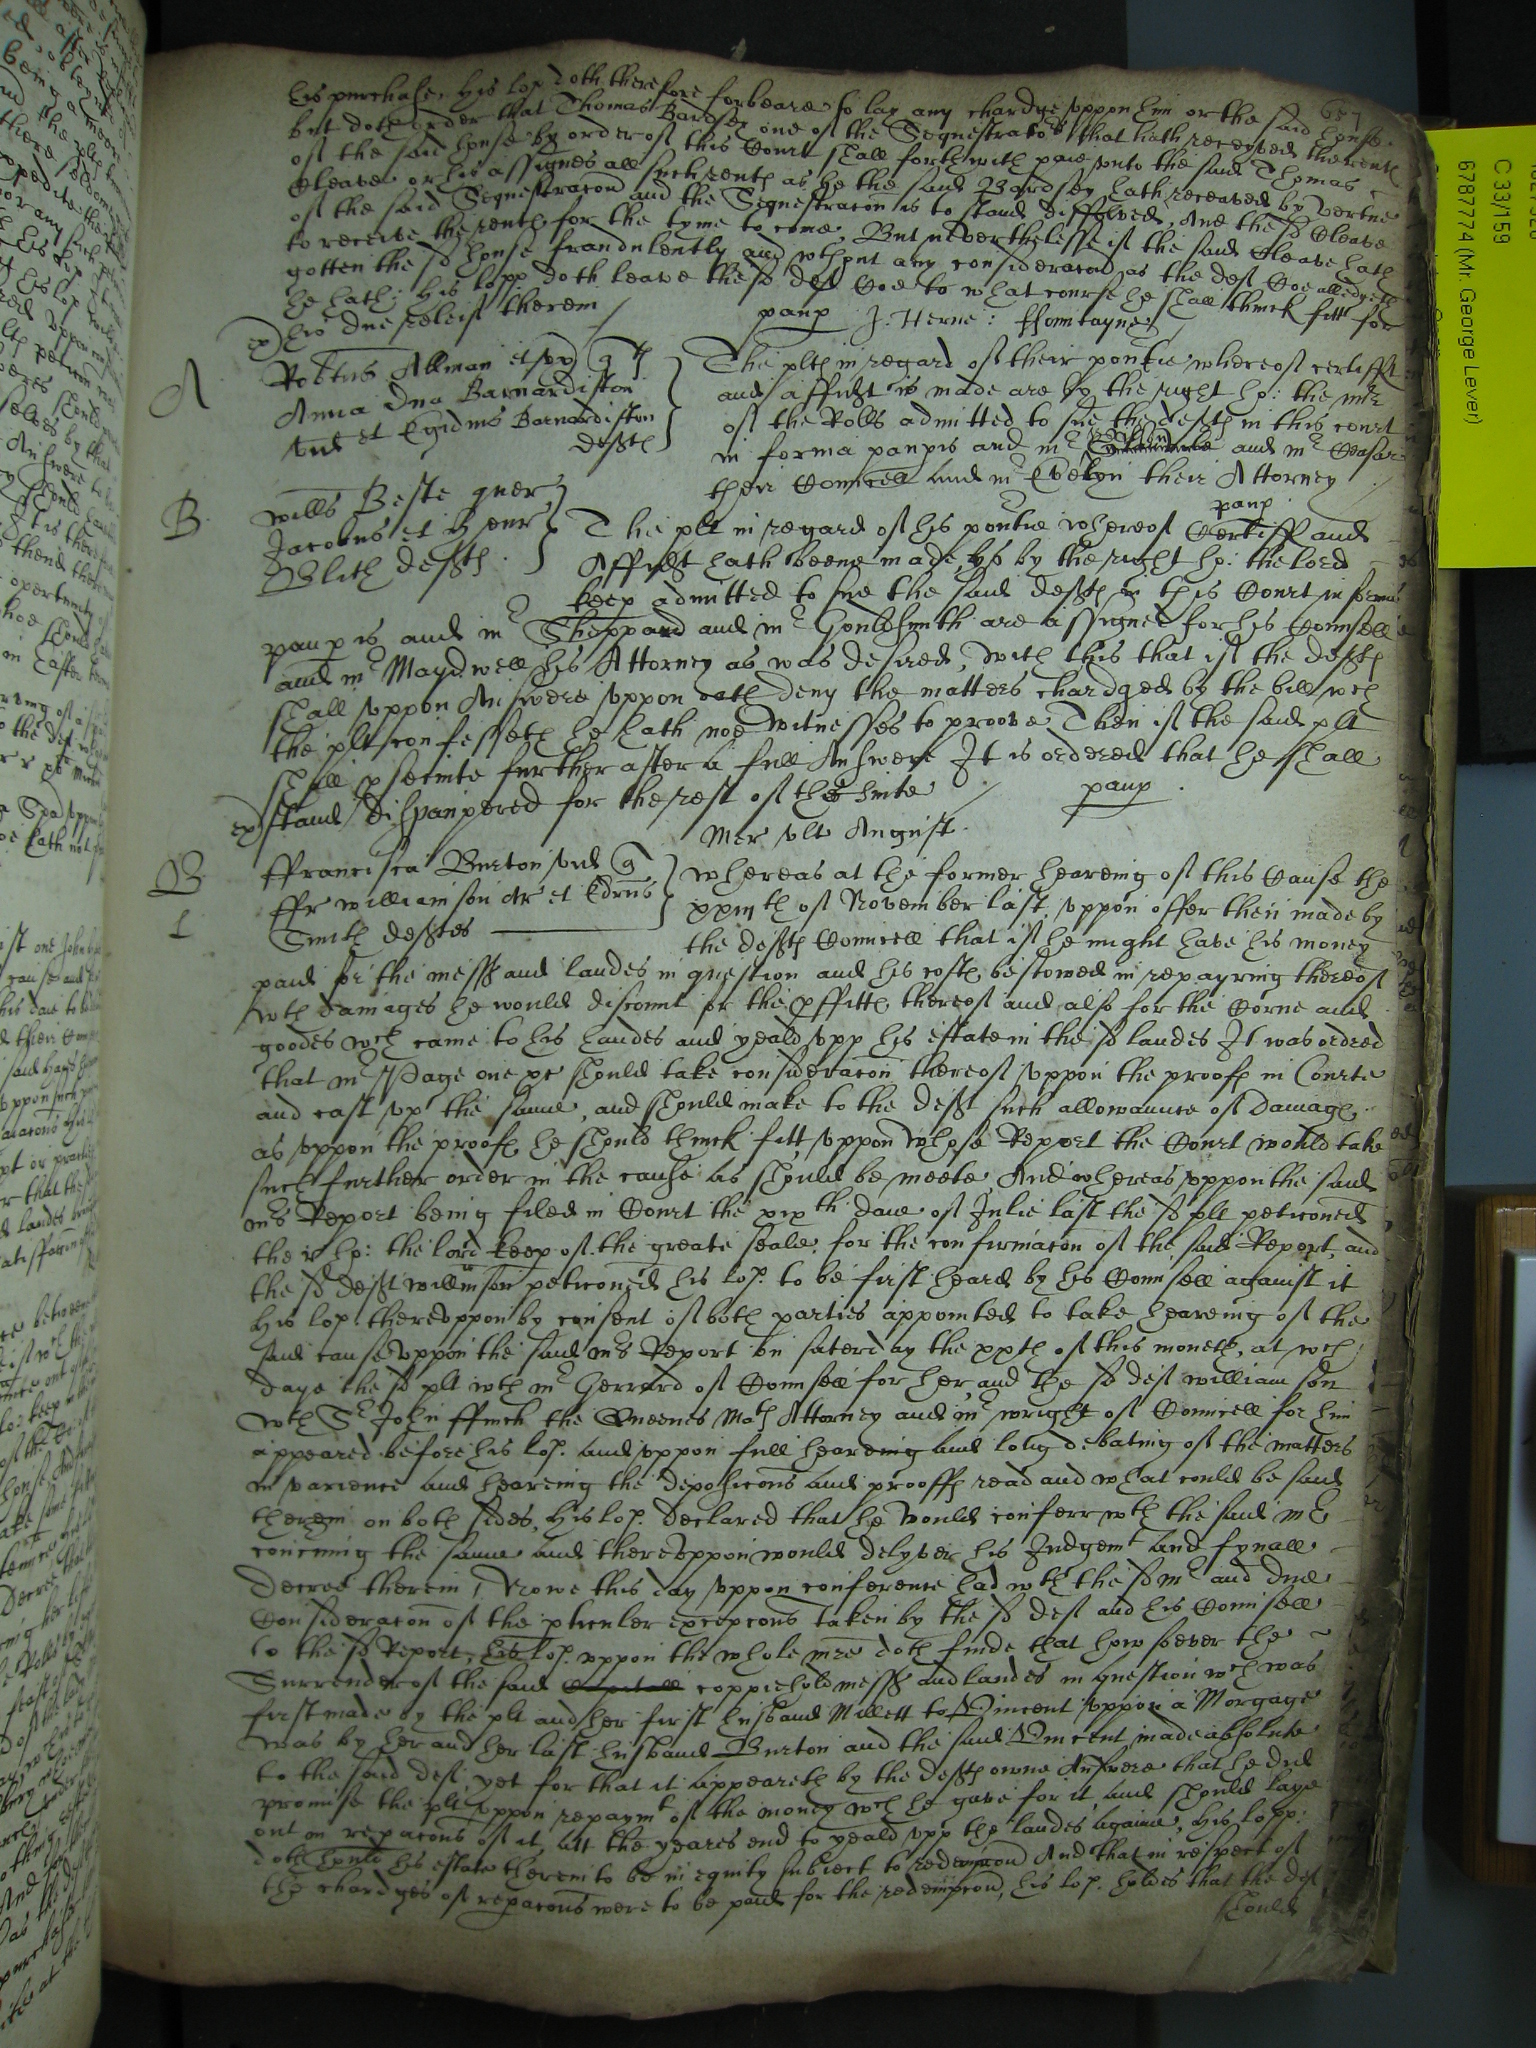 657
his purchase. His lop doth therefore forbeare to lay any chardge uppon him or the said house.
but doth order that Thomas Bardsey one of the Sequestrators that hath receyved the rents
of the said house by order of this Court shall forthwith paie unto the said Thomas
Cleave or his assignes all such rents as he the said Bardsey hath receaved by vertue
of the said Sequestracon and the Sequestracon is to stand dissolved, And the sd Cleave
to receive the rents for the tyme to come, But neverthelesse if the said Cleave hath
gotten the sd house fraudulently and wthout any consideracon as the deft Coe alledgeth
he hath; his lopp doth leave the sd deft Coe to what course he shall think fitt for
his due releif therein / paup J. Herne: ffountayne
ex
A
Robtus Allman et ux q
Anna Dna Barnardiston
vid et Egidius Barnardiston
defts
The plts in regard of their povtie whereof certifft
and affidt is made are by the right ho: the mr
of the Rolls admitted to sue the defts in this court
in forma paupis and mr and mr Cesar
their Councell and mr Evelyn their Attorney /
B
Wills Beste quer
Jacobus et Henr
Blith defts
paup
The plt in regard of his povtie whereof Certiff and
Affidt hath beene made, is by the right ho: the lord
keep admitted to sue the said defts in this Court in forma
paupis and mr Sheppard and mr Gouldsmith are assigned for his Counsell
and mr Maydwell his Attorney as was desired, with this that if the defts
shall uppon Answere uppon oath deny the matters chardged by the bill wch
the plt confesseth he hath noe witnesses to proove Then if the said plt
shall psecute further after a full Answere It is ordered that he shall
stand dispaupered for the rest of the suite / paup.
ex
Mer ult August.
B
1
ffrancisca Burton vid q
ffr Williamson Ar et Edrus
Smith deftes
Whereas at the former heareing of this Cause the
xxiiith of November last, uppon offer then made by
the defts Councell that if he might have his money
paid for the mess and landes in question and his costs bestowed in repayring thereof
wth damages he would discount for the pffitts thereof and also for the Corne and
goodes wch came to his handes and yeald upp his estate in the sd landes It was ordred
that mr Page one &c should take consideracon thereof uppon the proofs in Courte
and cast up the same, and should make to the deft such allowaunce of damags
as uppon the proofs he should think fitt, uppon whose Report the Court would take
such further order in the cause as should be meete And whereas uppon the said
mrs Report being filed in Court the xixth daie of Julie last the sd plt peticoned
the r ho: the lord keep of the greate seale, for the confirmacon of the said Report, and
the sd deft Williamson peticoned his lop. to be first heard by his Counsell against it
his lop. thereuppon by consent of both parties appointed to take heareing of the
said cause uppon the said mrs Report on saterday the xxth of this moneth, at wch
daye the sd plt wth mr Gerrard of Counsell for her, and the sd deft Williamson
wth Sr John ffinch the Queenes Mats Attorney and mr Wright of Councell for him
appeared before his lop. and uppon full heareing and long debating of the matters
in varience and heareing the deposicons and prooffs read and what could be said
therein on both sides, His lop. declared that he would conferr wth the said mr
concning the same and thereuppon would delyver his Judgemt and fynall
decree therein, Nowe this day uppon conference had wth the sd mr and due
Consideracon of the pticuler excepcons taken by the sd deft and his Counsell
to the sd Report, his lop. uppon the whole mre doth finde that howsoever the
Surrender of the said coppiehold mess and landes in question wch was
first made by the plt and her first husband Millett to Vincent uppon a Morgage
was by her and her last husband Burton and the said Vincent made absolute
to the said deft, yet for that it appeareth by the defts owne Answere that he did
promise the plt uppon repaymt of the money wch he gave for it and should laye
out in repacons of it, att the yeares end to yeald upp the landes againe, His lopp:
doth his estate therein to be in equity subiect to redempcon And that in respect of
the chardges of repacons were to be paid for the redempcon, his lop. holdes that the deft
should
C 33/159
67877774 (Mr. George Lever)